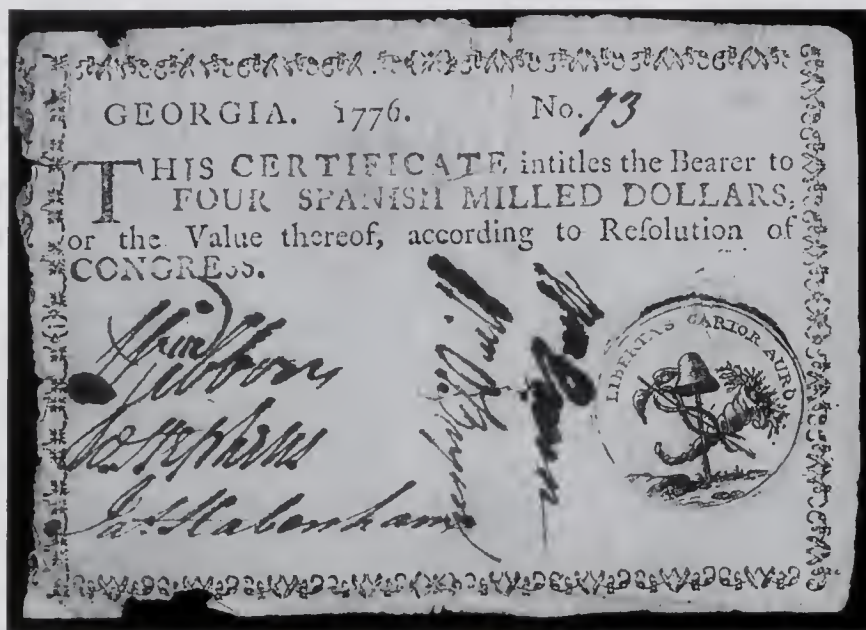 GEORGIA. 1776. No. 73
THIS CERTIFICATE intitles the Bearer to
FOUR SPANISH MILLED DOLLARS,
or the Value thereof, according to Reſolution of
CONGRESS.
Gibbons
Wm Stephens
Jas Habersham
LIBERTAS CARIOR AURO